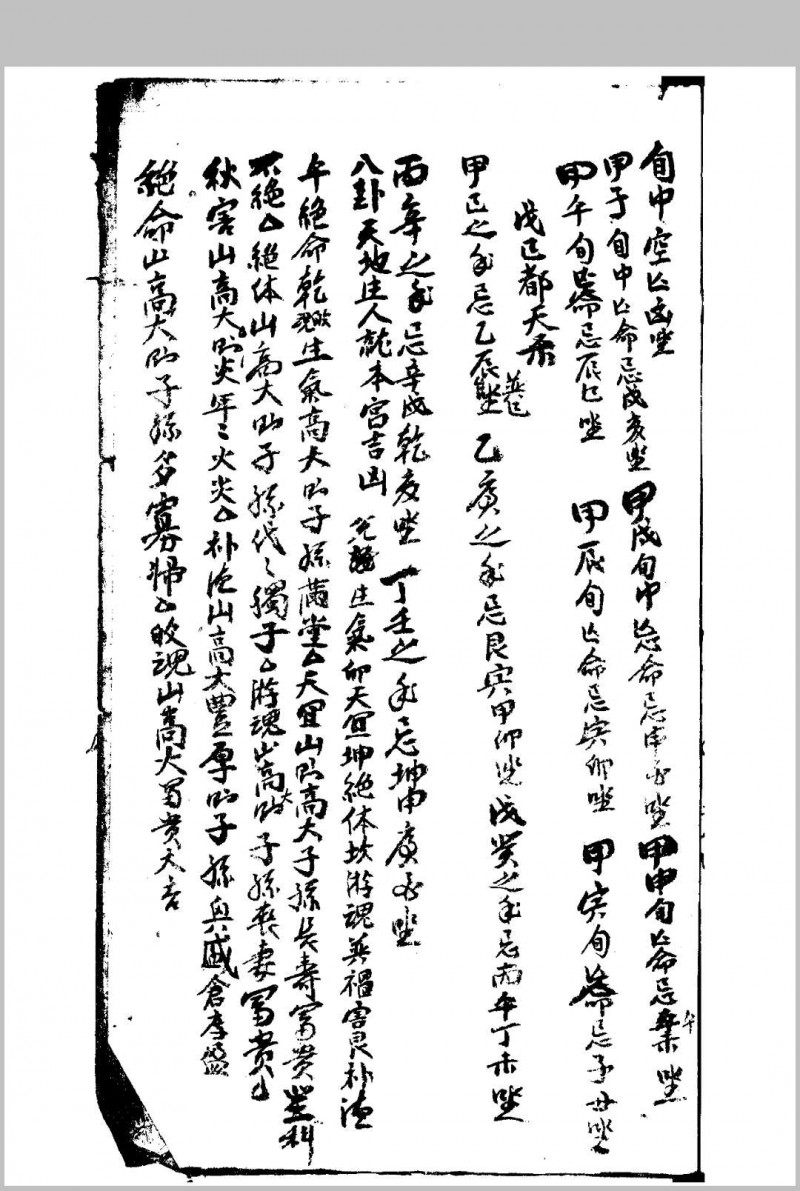 旬中空亡凶坐
甲子旬中亡命忌戌亥坐 甲戌旬中亡命忌申酉坐 甲申旬亡命忌午未坐
甲午旬亡命忌辰巳坐 甲辰旬亡命忌寅卯坐 甲寅旬亡命忌子丑坐
戊己都天
甲己之年忌乙辰坐 乙庚之年忌艮寅甲卯坐 戊癸之年忌丙午丁未坐
丙辛之年忌辛戌乾亥坐 丁壬之年忌坤申庚酉坐
八卦天地生人龍本宮吉凶 生氣卯天宜坤絶体坎游魂巽禍害艮补
午絶命乾魂生氣高大則子孫滿堂天宜山則高大子孫長壽富貴登科
不絶絶体山高大則子孫代々獨子游魂山高大則子孫喪妻富貴
害山高大則災年々火災补山高大豊厚則子孫興盛倉库盛
絶命山高大則子孫多寡婦魂山高大富貴大吉